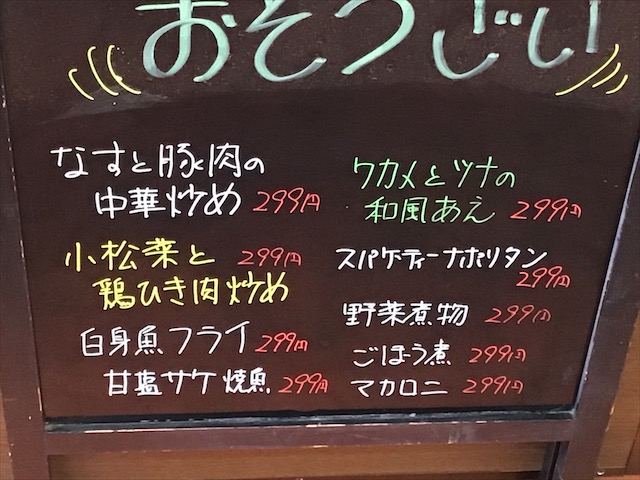 おそうざい
なすと豚肉の
中華炒め 299円
小松菜と 299円
鶏ひき肉炒め
白身魚フライ 299円
甘塩サケ焼魚 299円
ワカメとツナの
和風あえ 299円
スパゲティーナポリタン
299円
野菜煮物 299円
ごぼう煮 299円
マカロニ 299円